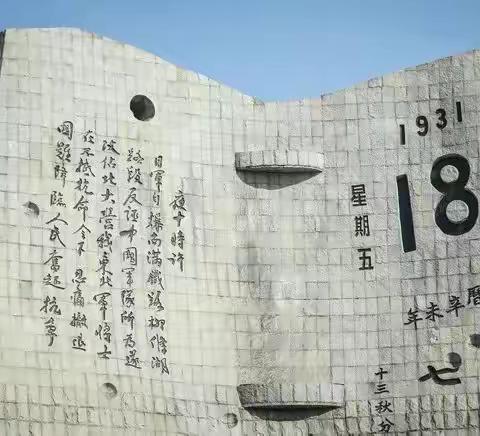 1931
18
星期五
曆辛未年
七
十三秋分
夜十時許
日軍自爆南滿鐵路柳條湖
路段反誣中國軍隊所為遂
攻佔北大營我東北軍將士
在不抵抗命令下忍痛撤退
國難降臨人民奮起抗爭